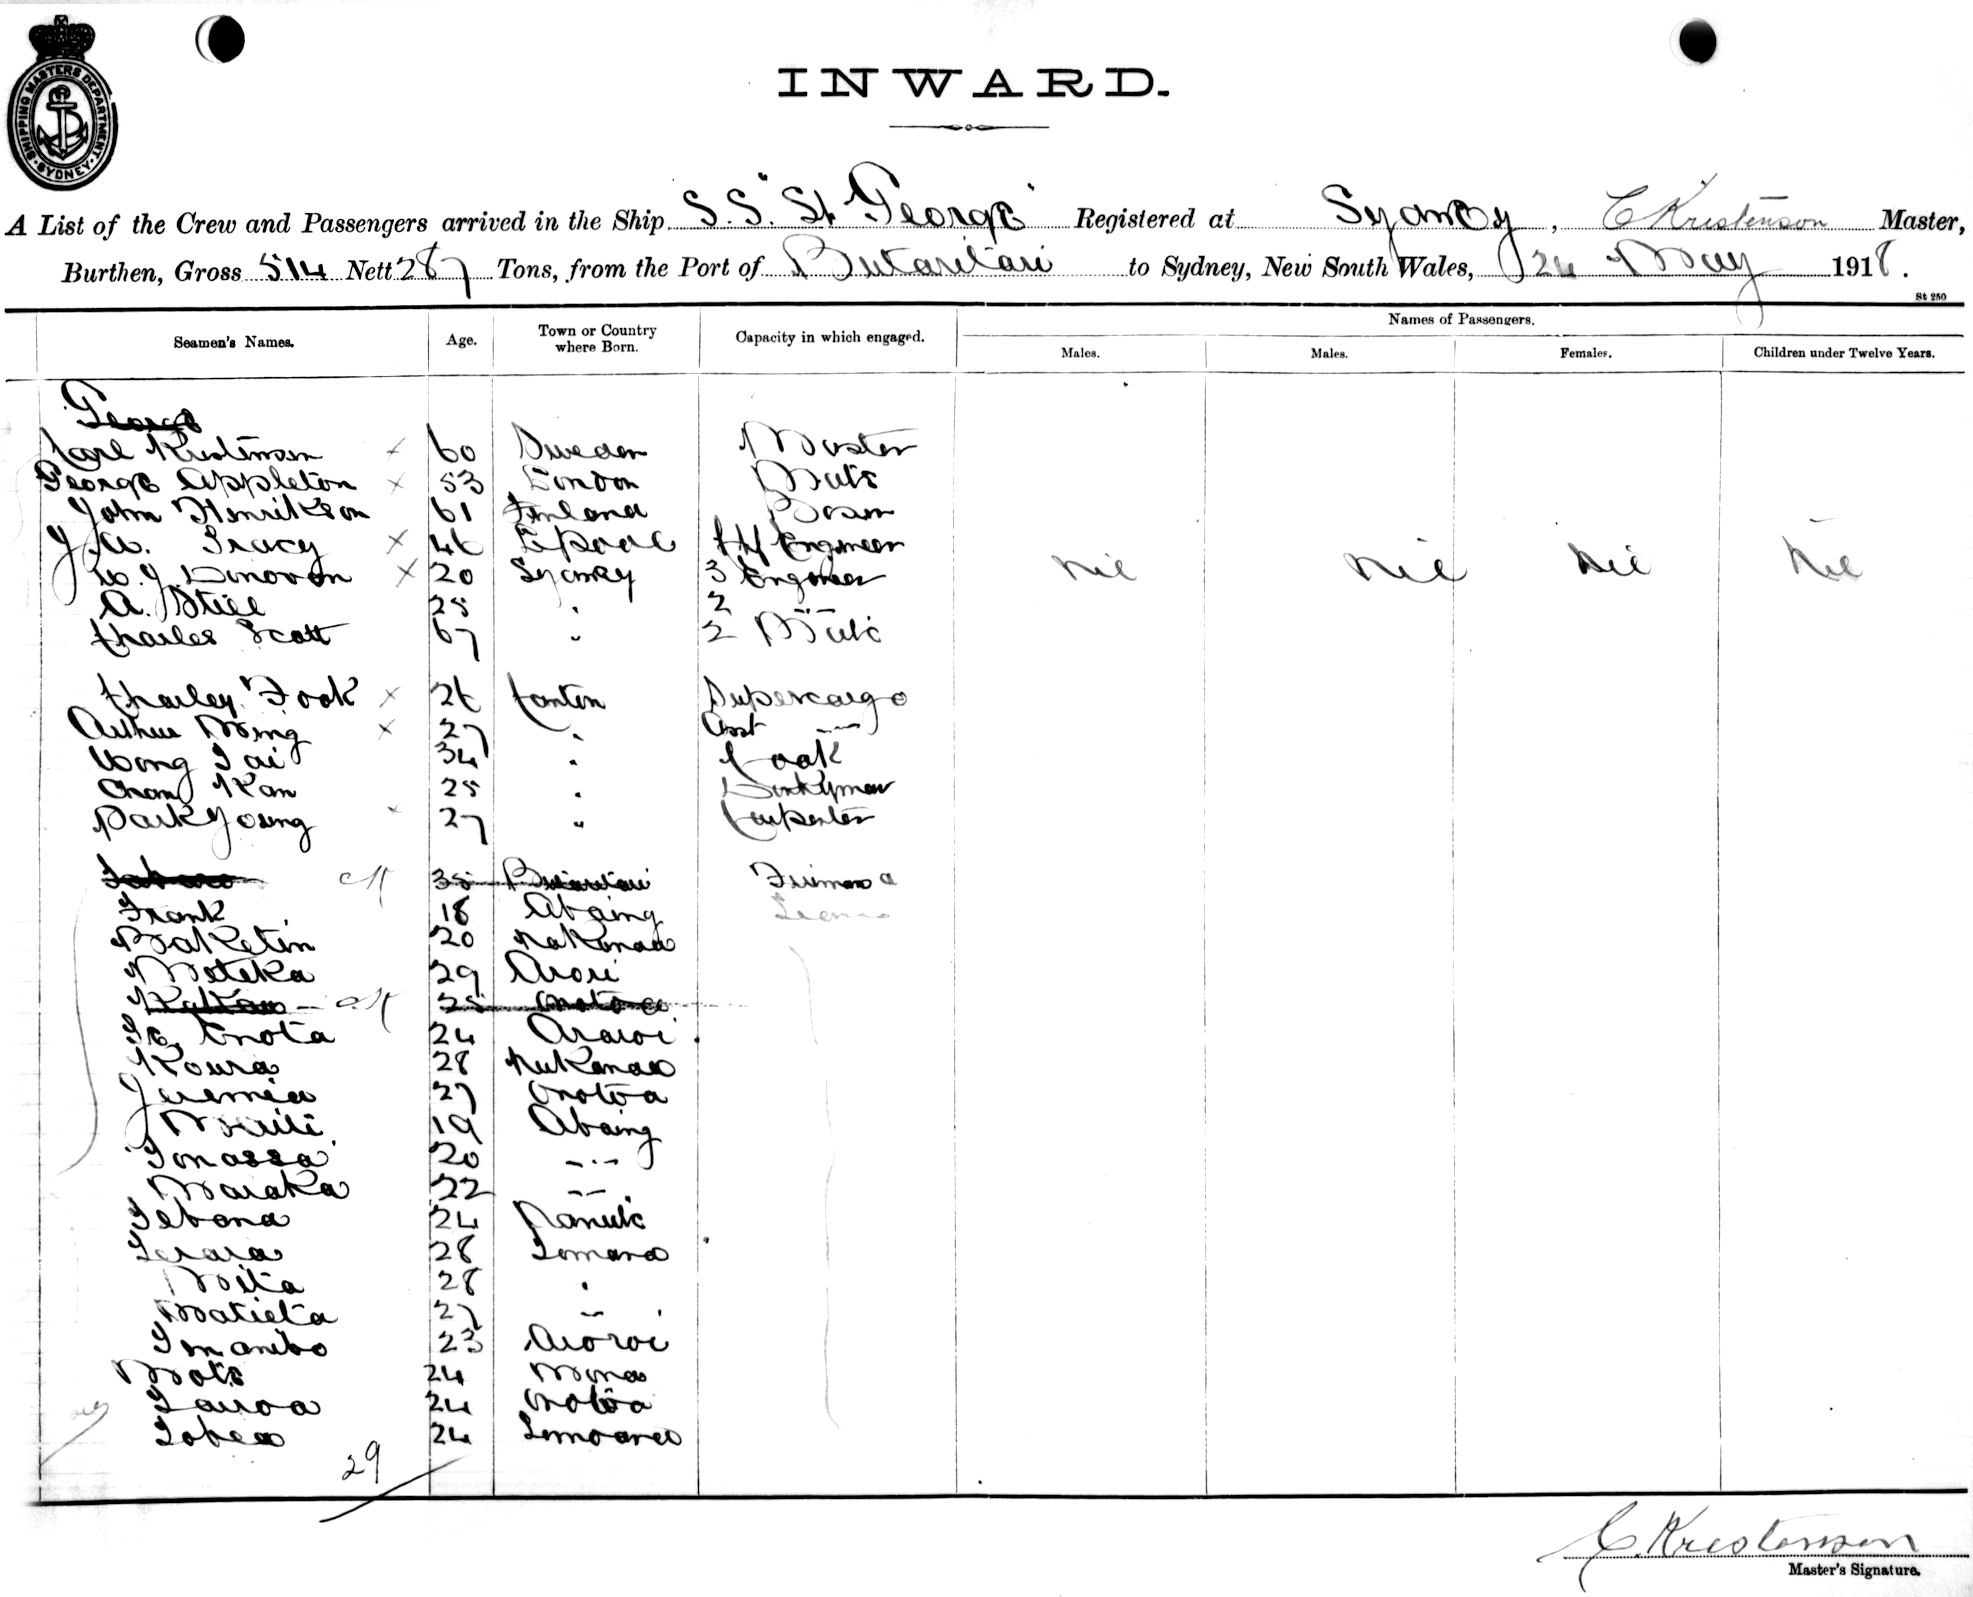 SHIPPING MASTERS DEPARTMENT · SYDNEY ·
INWARD.
A List of the Crew and Passengers arrived in the Ship S.S. "St George" Registered at Sydney, C Kristenson Master,
Burthen, Gross 514 Nett 287 Tons, from the Port of Butaritari to Sydney, New South Wales, 24 May 1918.
St 250
Seamen's Names. Age. Town or Country where Born. Capacity in which engaged. Names of Passengers.
Males. Males. Females. Children under Twelve Years.
George
Karl Kristensen x 60 Sweden Master
George Appleton x 53 London Mate
John Henrikson 61 Finland Bosun
J. W. Tracy x 46 Engineer
W. J. Donovan x 20 Sydney 3 Engineer Nil Nil Nil Nil
A. Still 25 " 2 "
Charles Scott 67 " 2 Mate
Charley Fook x 26 Canton Supercargo
Arthur Ming x 27 " Asst "
Wong Tai 34 " Cook
Chan Kan 25 " Donkyman
Park Young x 27 " Carpenter
35 Butaritari Firemen a
Frank 18 Abaing
Baketin 20 Nakunau
Moteka 29 Arori
25 Onotoa
Te Onota 24 Araroi
Koura 28 Nukunau
Jeremia 27 Onotoa
Maiti 19 Abaing
Tonassa 20 "
Maraka 22 "
Tebana 24 Nanuti
Terara 28 Tamana
Mita 28 "
Matieta 27 "
Tmanibo 23 Aroroi
Moti 24 Mana
Tauoa 24 Onotoa
Tobea 24
29
C. Kristensen
Master's Signature.